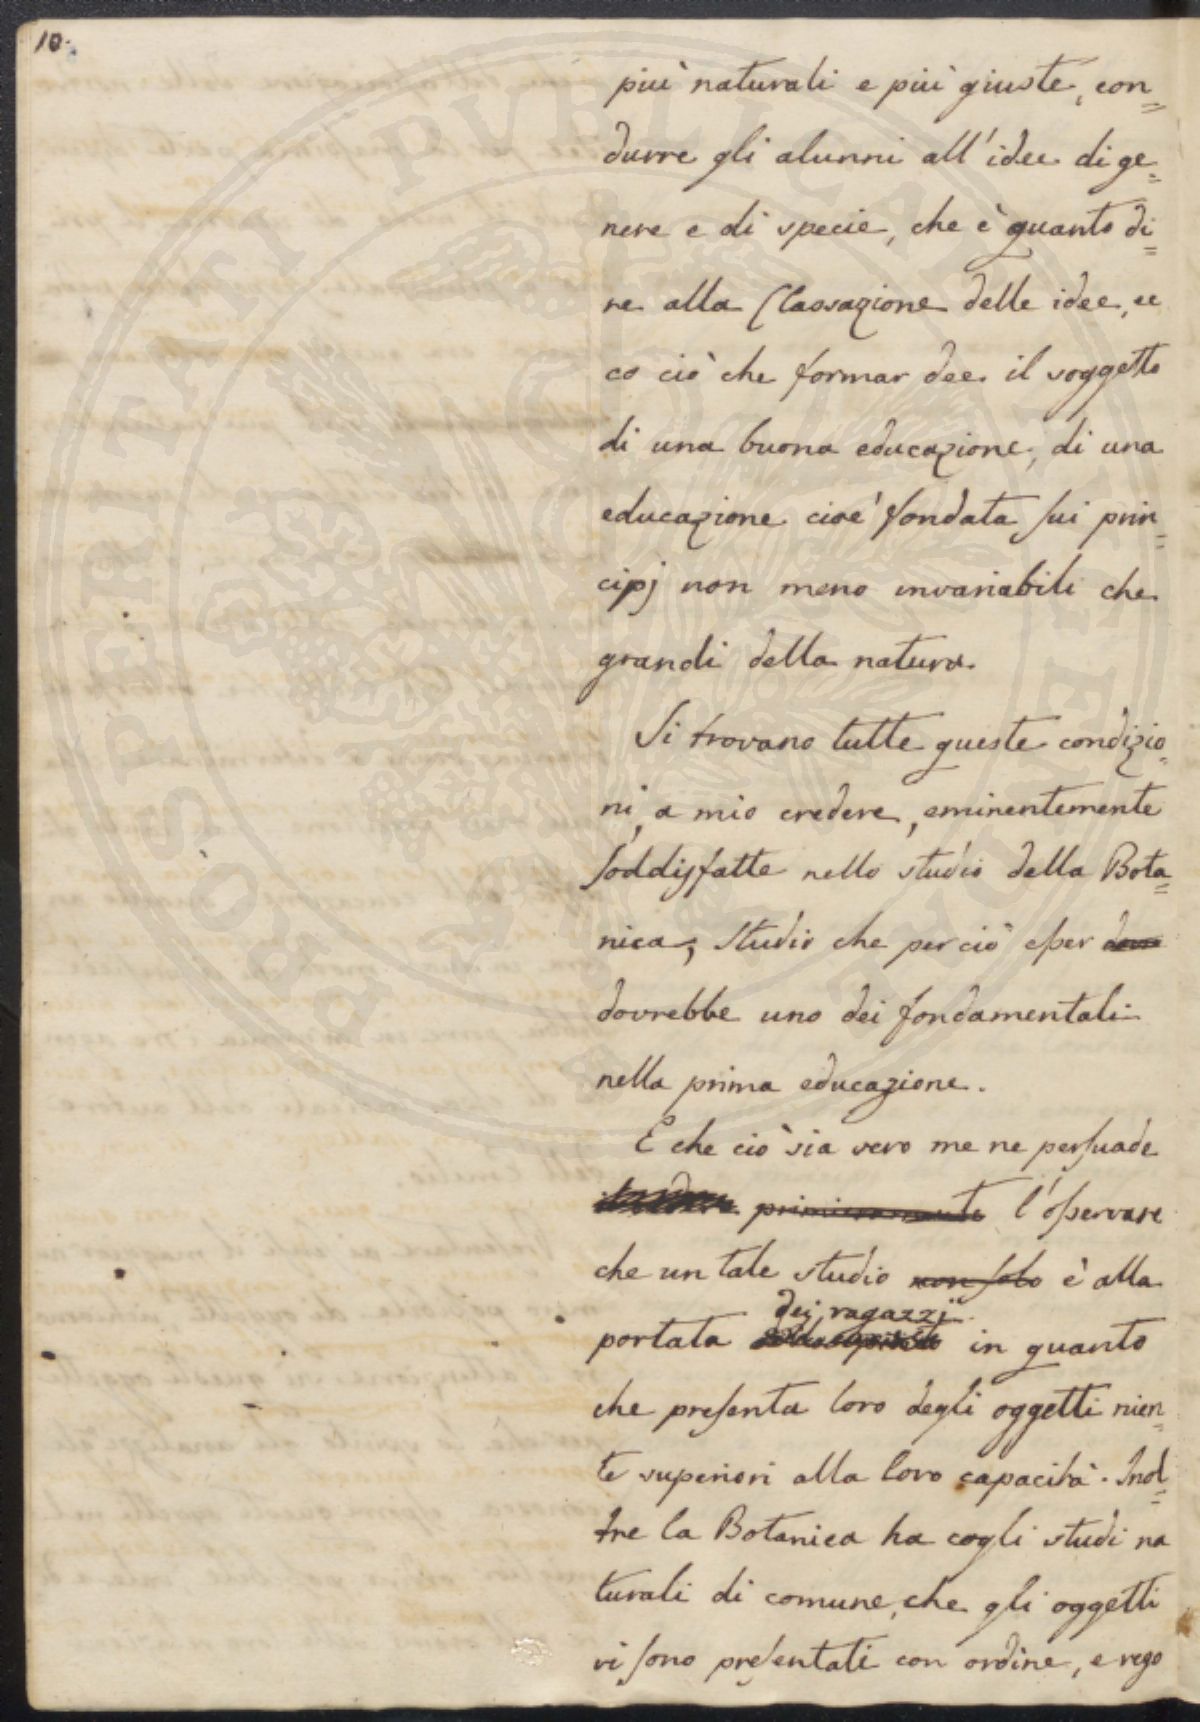 10.
più naturali e più giuste, con=
durre gli alunni all'idee di ge=
nere e di specie, che è quanto di=
re alla Classazione delle idee, ec
co ciò che formar dee il soggetto
di una buona educazione, di una
educazione cioè fondata sui prin=
cipj non meno invariabili che
grandi della natura.
Si trovano tutte queste condizio=
ni, a mio credere, eminentemente
soddisfatte nello studio della Bota=
nica, studio che perciò esser
dovrebbe uno dei fondamentali
nella prima educazione.
E che ciò sia vero me ne persuade
primieramente l'osservare
che un tale studio non solo è alla
dei ragazzi
portata in quanto
che presenta loro degli oggetti nien=
te superiori alla loro capacità. Inol=
tre la Botanica ha cogli studi na
turali di comune, che gli oggetti
vi sono presentati con ordine, e rego
PROSPERITATI PVBLICAE AVGENDAE